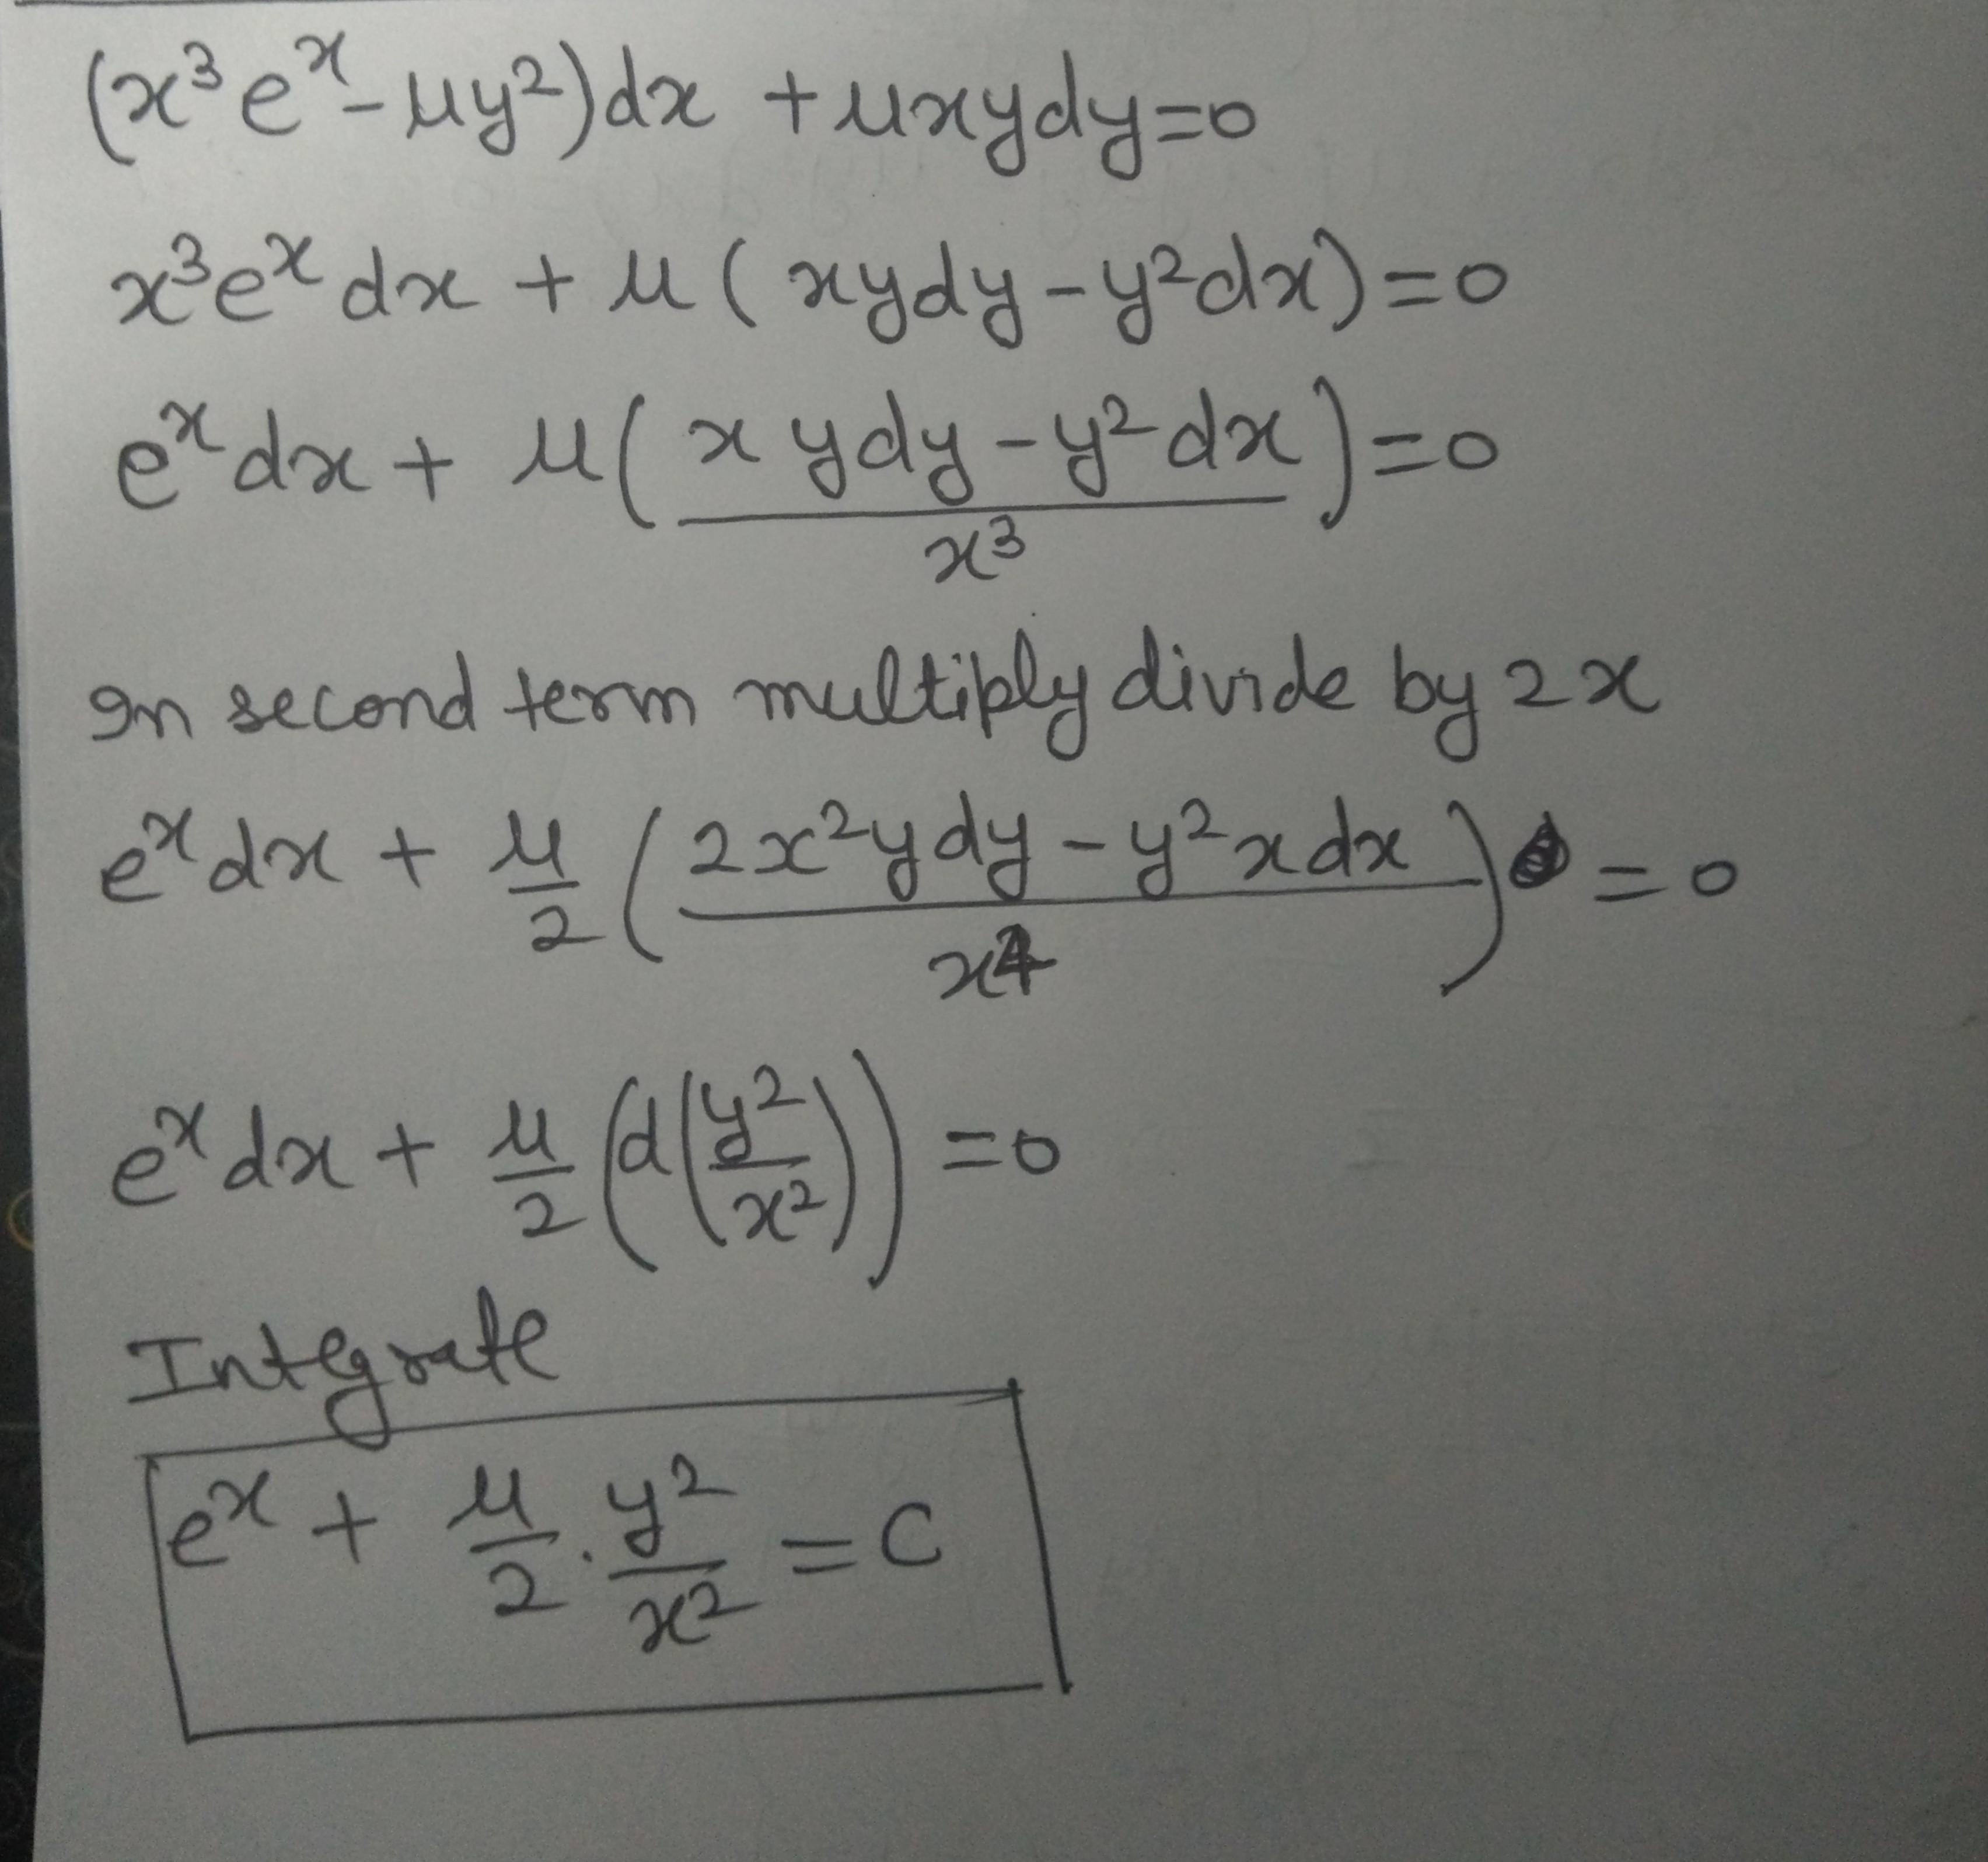 (x³eˣ - μy²)dx + μxydy=0
x³eˣ dx + μ( xydy - y²dx)=0
eˣdx + μ( (x ydy - y²dx)/x³ )=0
In second term multiply divide by 2x
eˣdx + μ/2 ( (2x²ydy - y²xdx)/x⁴ ) = 0
eˣdx + μ/2 (d(y²/x²)) =0
Integrate
eˣ + μ/2 · y²/x² = C